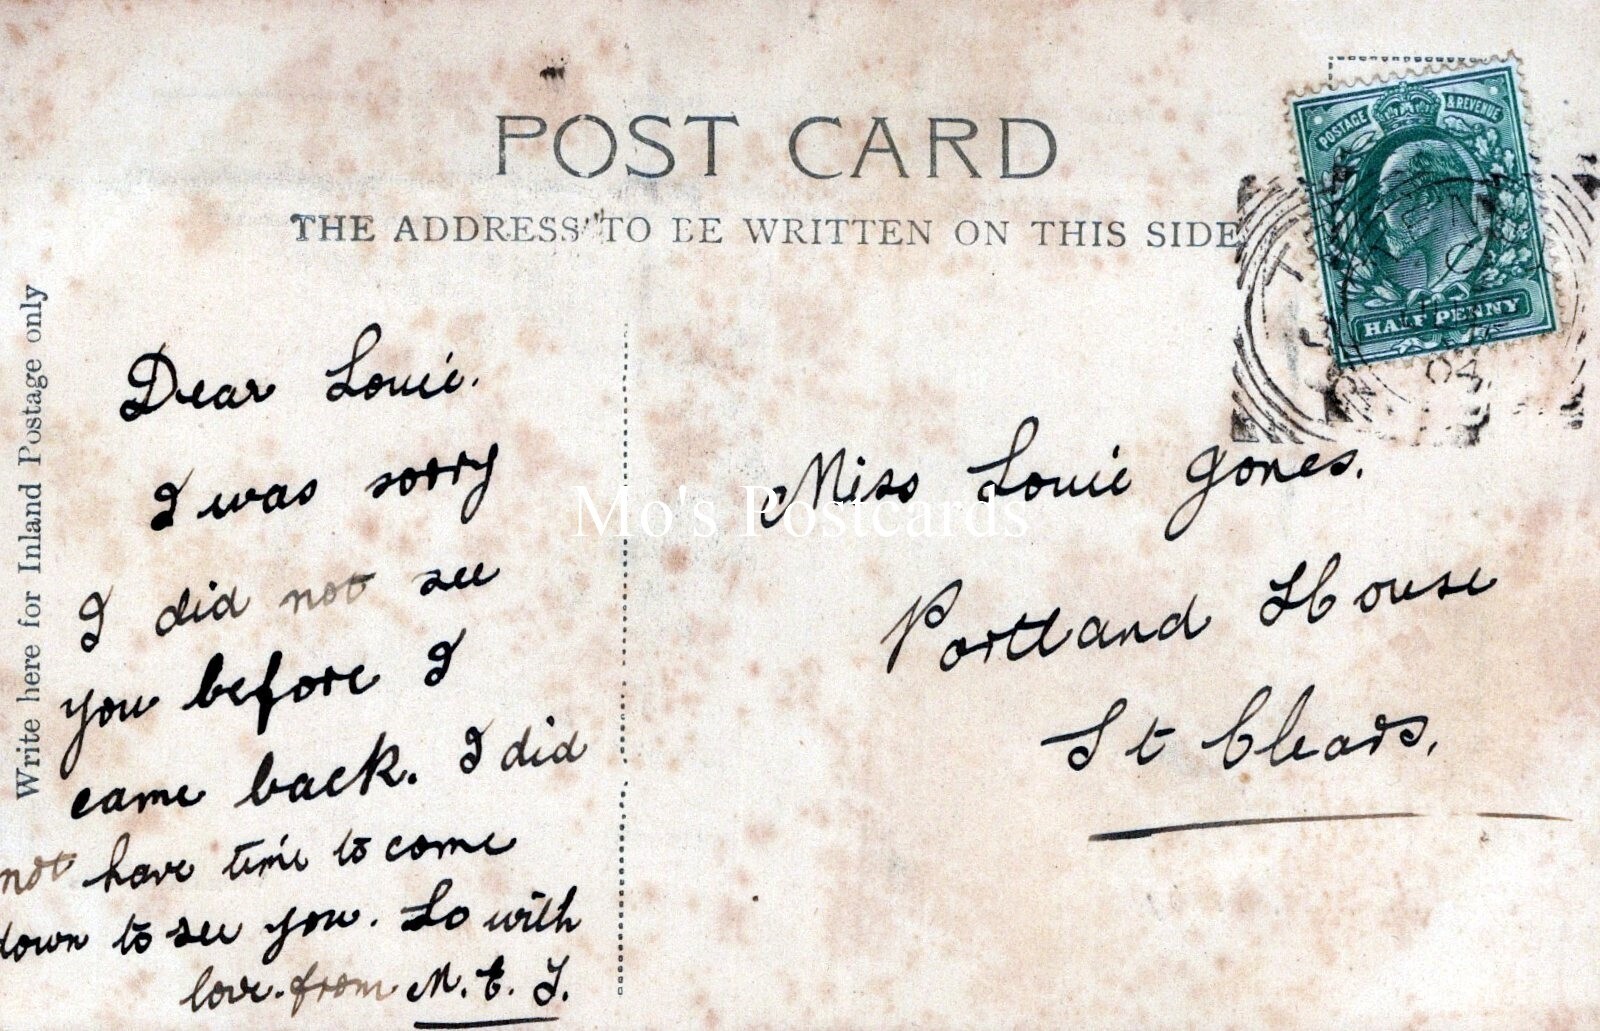 POST CARD
THE ADDRESS TO BE WRITTEN ON THIS SIDE
POSTAGE & REVENUE
HALF PENNY
04
Write here for Inland Postage only
Dear Louie.
I was sorry
I did not see
you before I
came back. I did
not have time to come
down to see you. So with
love. from M. E. J.
Miss Louie Jones.
Portland House
St Clears.
Mo's Postcards